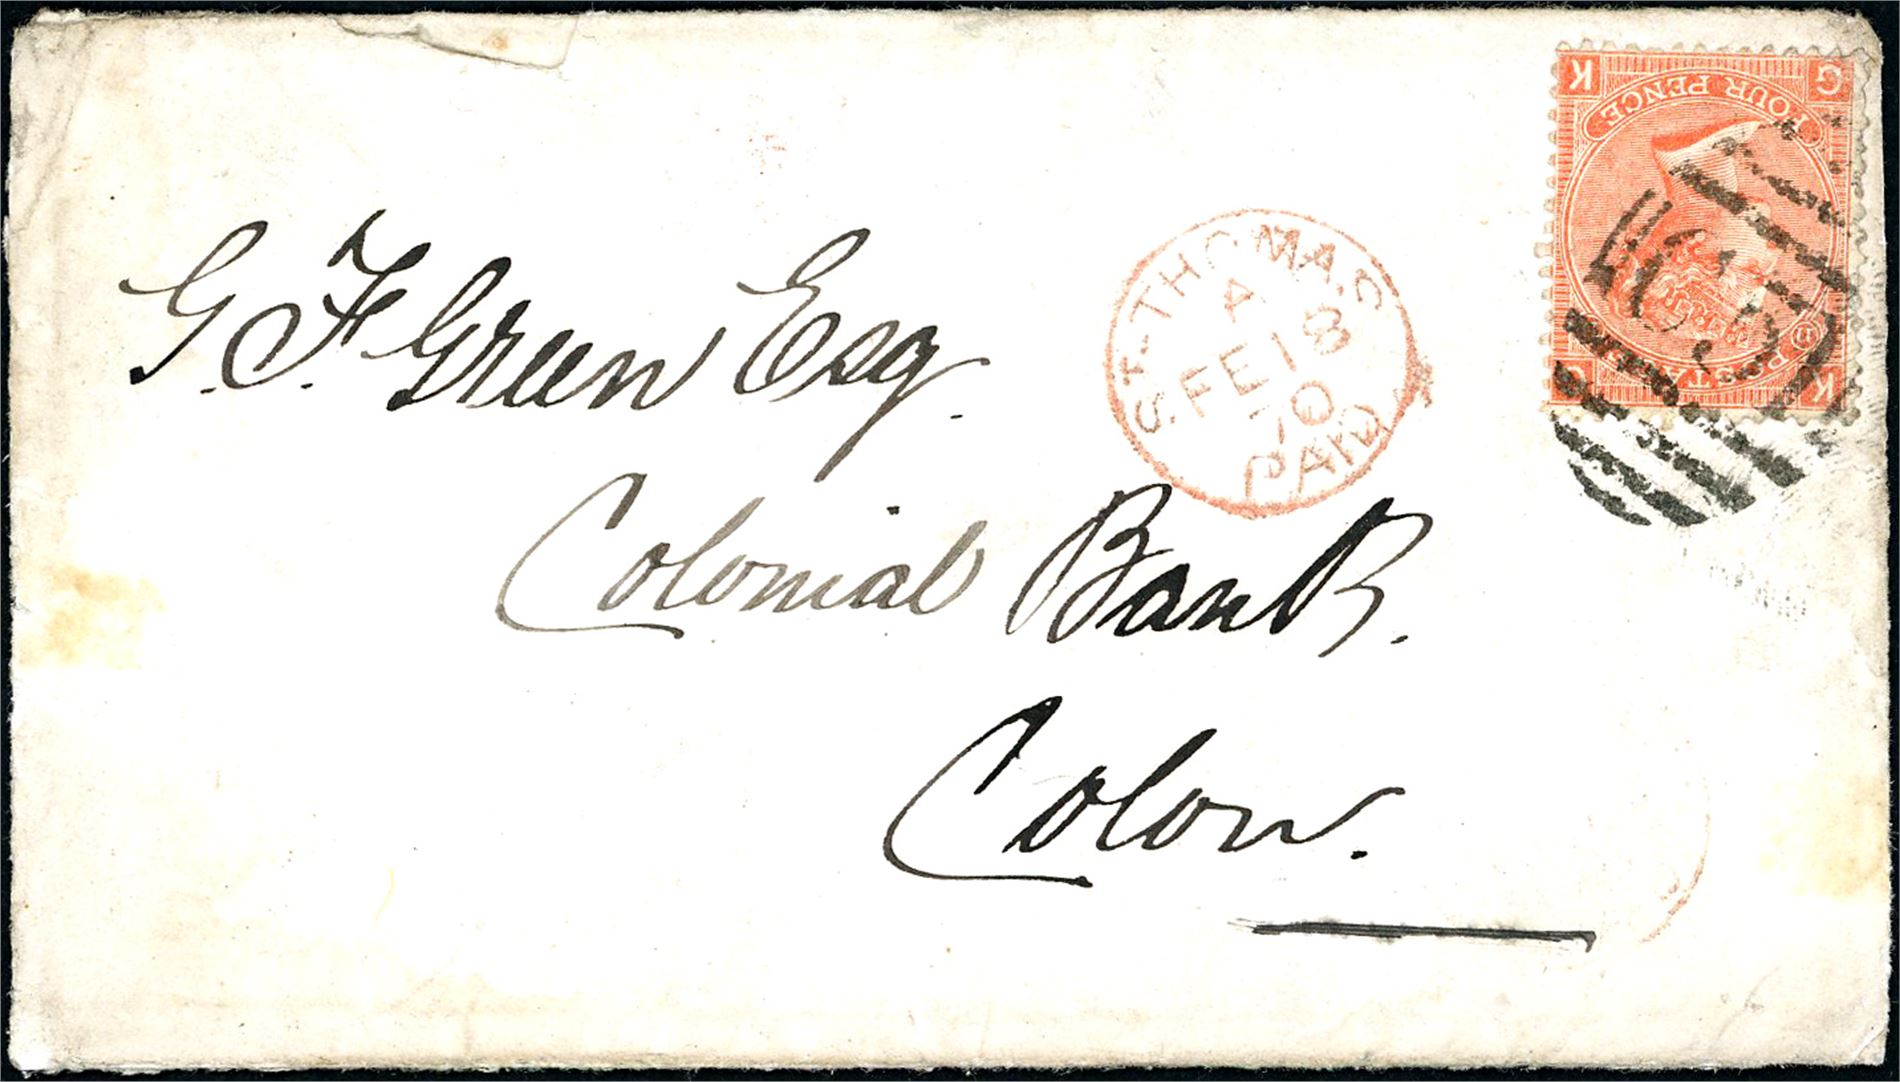 G. F. Green Esq.
Colonial Bank.
Colon.
ST-THOMAS
A
FE 18
70
PAID
K G
FOUR PENCE
POSTAGE
K
C51